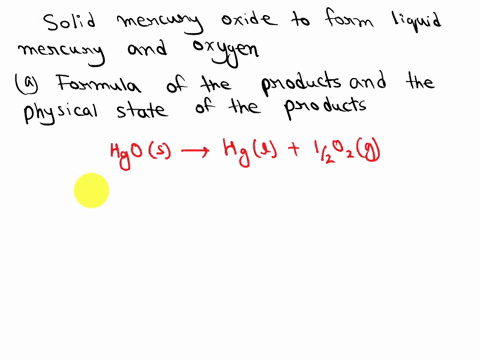 Solid mercury oxide to form liquid
mercury and oxygen
(a) Formula of the products and the
physical state of the products
HgO(s) → Hg(l) + 1/2O₂(g)